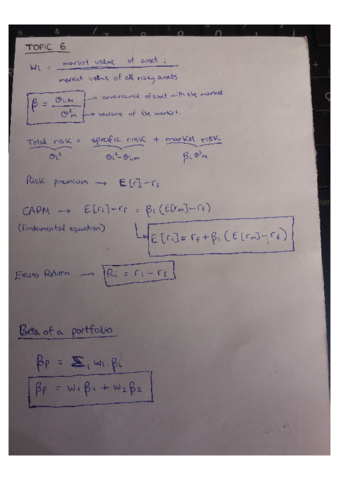 TOPIC 6
wi = market value of asset i
market value of all risky assets
β = σi,m / σ²m
covariance of asset with the market
variance of the market.
Total risk = specific risk + market risk
σi² σi²-σi,m βi σ²m
Risk premium → E[r]-rf
CAPM → E[ri]-rf = βi (E[rm]-rf)
(fundamental equation)
E[ri] = rf + βi (E[rm]-rf)
Excess Return → Ri = ri - rf
Beta of a portfolio
βp = Σi wi βi
βp = w1 β1 + w2 β2